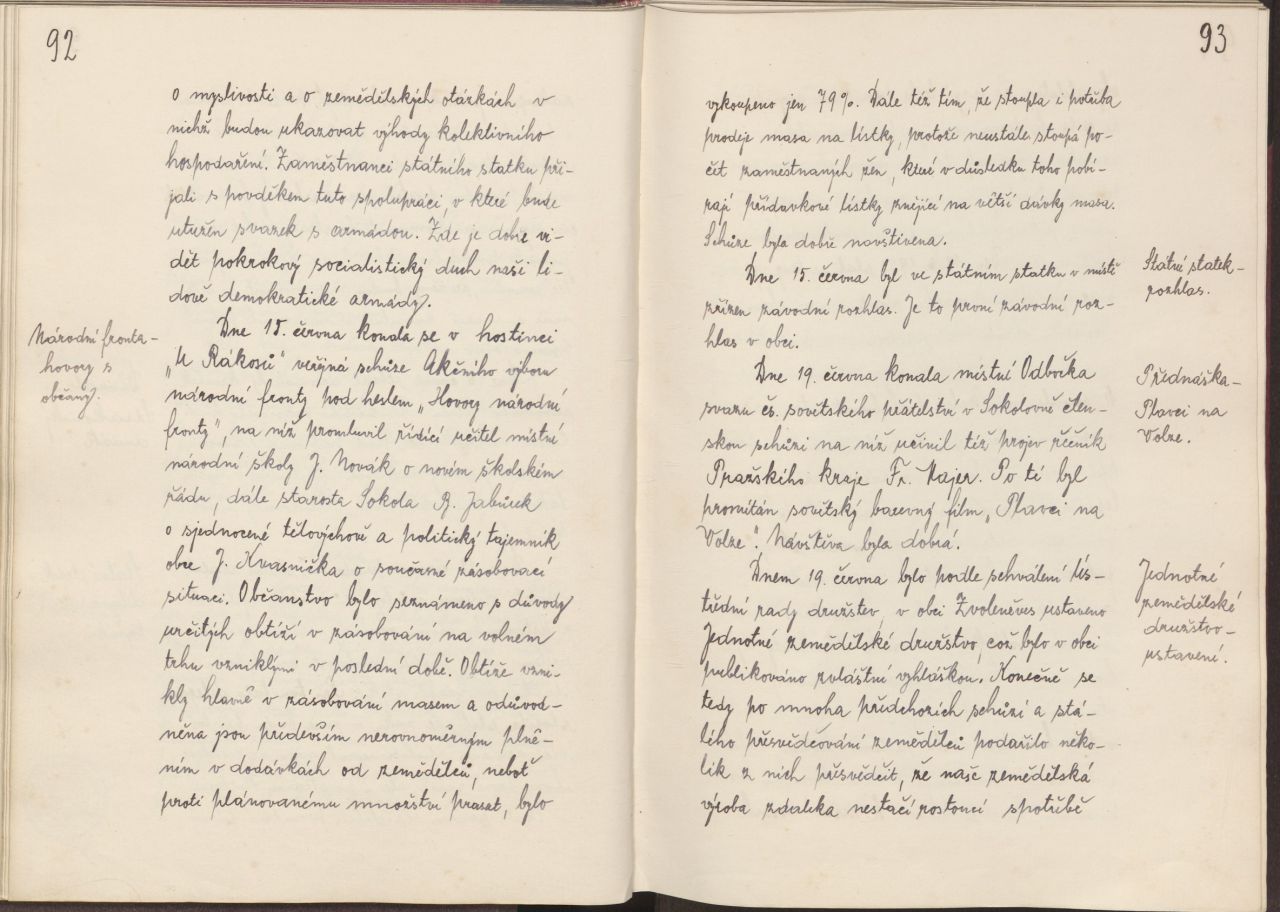 92
o myslivosti a o zemědělských otázkách v
nichž budou ukazovat výhody kolektivního
hospodaření. Zaměstnanci státního statku při-
jali s povděkem tuto spolupráci, v které bude
utužen svazek s armádou. Zde je dobře vi-
dět pokrokový socialistický duch naší li-
dově demokratické armády.
Národní fronta-
hovory s
občany.
Dne 15. června konala se v hostinci
„U Rákosů" veřejná schůze Akčního výboru
národní fronty pod heslem „Hovory národní
fronty", na níž promluvil řídící učitel místní
národní školy J. Novák o novém školském
řádu, dále starosta Sokola R. Jabůrek
o sjednocené tělovýchově a politický tajemník
obce J. Kvasnička o současné zásobovací
situaci. Občanstvo bylo seznámeno s důvody
určitých obtíží v zásobování na volném
trhu vzniklými v poslední době. Obtíže vzni-
kly hlavně v zásobování masem a odůvod-
něna jsou především nerovnoměrným plně-
ním v dodávkách od zemědělců, neboť
proti plánovanému množství prasat, bylo
93
vykoupeno jen 79%. Dále též tím, že stoupla i potřeba
prodeje masa na lístky, protože neustále stoupá po-
čet zaměstnaných žen, které v důsledku toho pobí-
rají přídavkové lístky znějící na větší dávky masa.
Schůze byla dobře navštívena.
Státní statek-
rozhlas.
Dne 15. června byl ve státním statku v místě
zřízen závodní rozhlas. Je to první závodní roz-
hlas v obci.
Přednáška-
Plavci na
Volze.
Dne 19. června konala místní Odbočka
svazu čs. sovětského přátelství v Sokolovně člen-
skou schůzi na níž učinil též projev řečník
Pražského kraje Fr. Majer. Po té byl
promítán sovětský barevný film „Plavci na
Volze". Návštěva byla dobrá.
Jednotné
zemědělské
družstvo-
ustavení.
Dnem 19. června bylo podle schválení Ús-
třední rady družstev, v obci Zvoleněves ustaveno
Jednotné zemědělské družstvo, což bylo v obci
publikováno zvláštní vyhláškou. Konečně se
tedy po mnoha předchozích schůzí a stá-
lého přesvědčování zemědělců podařilo něko-
lik z nich přesvědčit, že naše zemědělská
výroba zdaleka nestačí rostoucí spotřebě